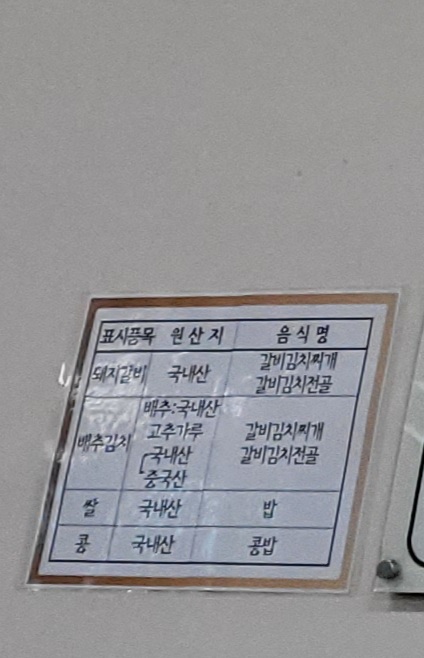 표시품목 원산지 음식명
돼지갈비 국내산 갈비김치찌개
갈비김치전골
배추김치 배추:국내산
고추가루 갈비김치찌개
국내산 갈비김치전골
중국산
쌀 국내산 밥
콩 국내산 콩밥